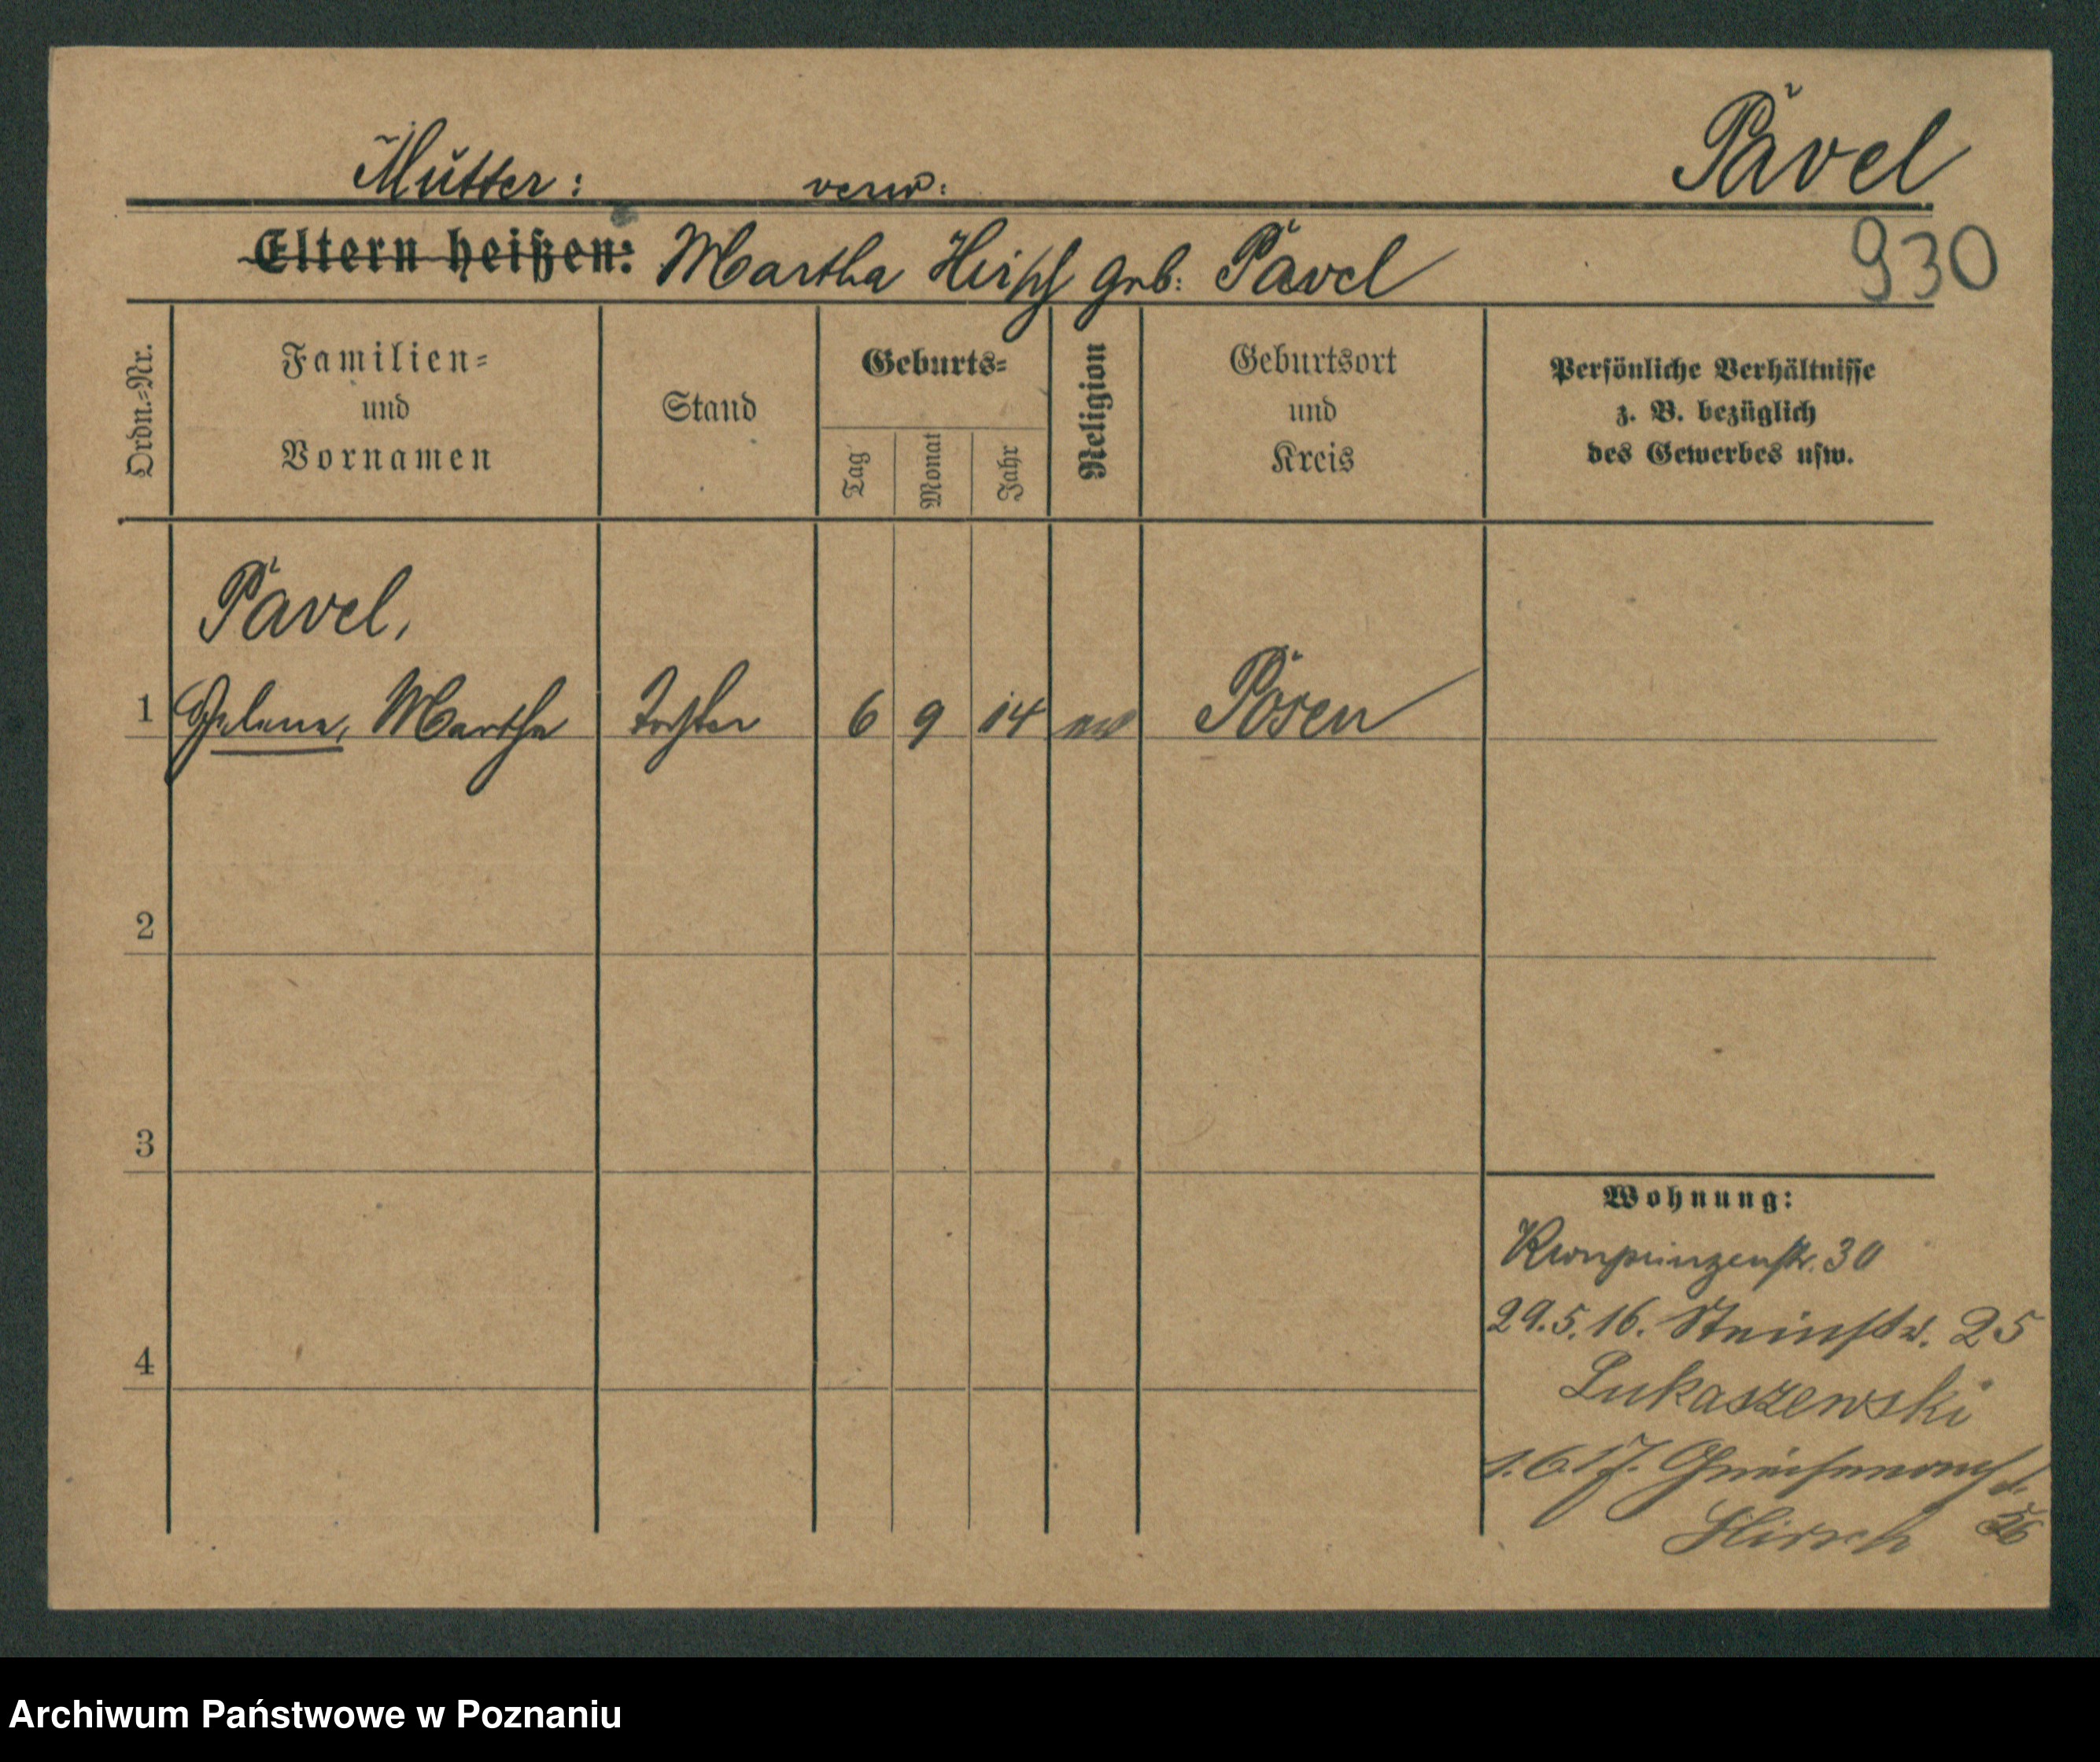 Pavel
Mutter: verw:
Eltern heißen: Martha Hirsch geb: Pavel
930
Ordn.-Nr.
Familien-
und
Vornamen
Stand
Geburts-
Tag
Monat
Jahr
Religion
Geburtsort
und
Kreis
Persönliche Verhältnisse
z. B. bezüglich
des Gewerbes usw.
Pavel,
1 Helene, Martha Tochter 6 9 14 Posen
2
3
4
Wohnung:
Kronprinzenstr. 30
29.5.16. Steinstr. 25
Lukaszewski
1.6.17. Gneisenaustr.
Hirsch
Archiwum Państwowe w Poznaniu